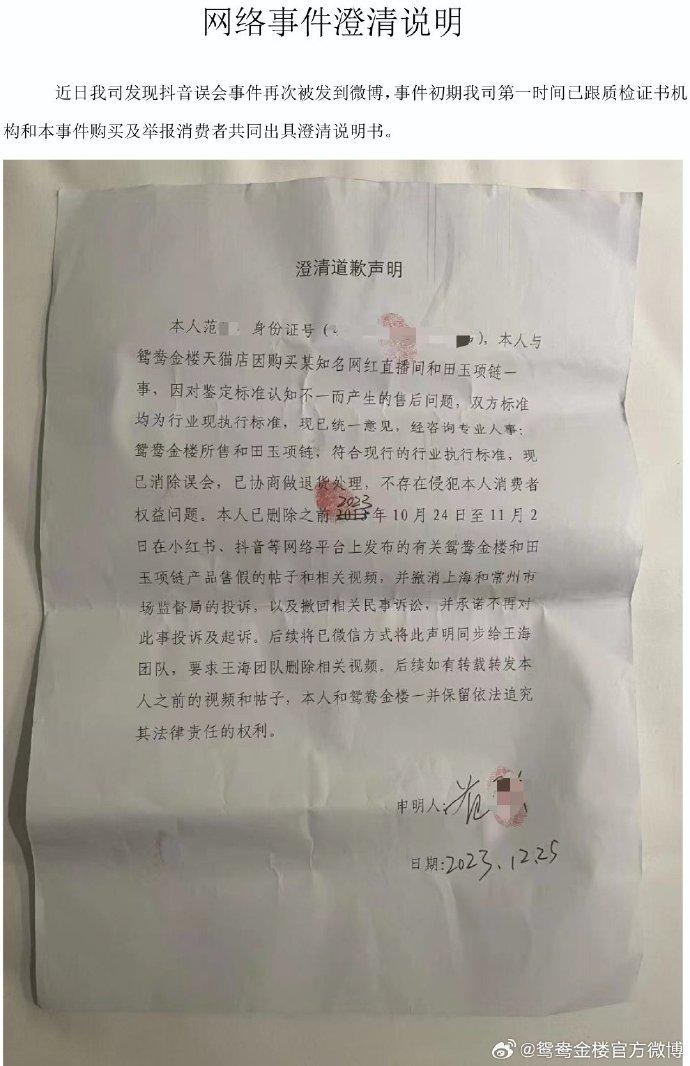 网络事件澄清说明
近日我司发现抖音误会事件再次被发到微博，事件初期我司第一时间已跟质检证书机
构和本事件购买及举报消费者共同出具澄清说明书。
澄清道歉声明
本人范 身份证号（ ），本人与
鸳鸯金楼天猫店因购买某知名网红直播间和田玉项链一
事，因对鉴定标准认知不一而产生的售后问题，双方标准
均为行业现执行标准，现已统一意见，经咨询专业人事：
鸳鸯金楼所售和田玉项链，符合现行的行业执行标准，现
已消除误会，已协商做退货处理，不存在侵犯本人消费者
2023
权益问题。本人已删除之前2013年10月24日至11月2
日在小红书、抖音等网络平台上发布的有关鸳鸯金楼和田
玉项链产品售假的帖子和相关视频，并撤消上海和常州市
场监督局的投诉，以及撤回相关民事诉讼，并承诺不再对
此事投诉及起诉。后续将已微信方式将此声明同步给王海
团队，要求王海团队删除相关视频。后续如有转载转发本
人之前的视频和帖子，本人和鸳鸯金楼一并保留依法追究
其法律责任的权利。
申明人：范
日期：2023.12.25
@鸳鸯金楼官方微博